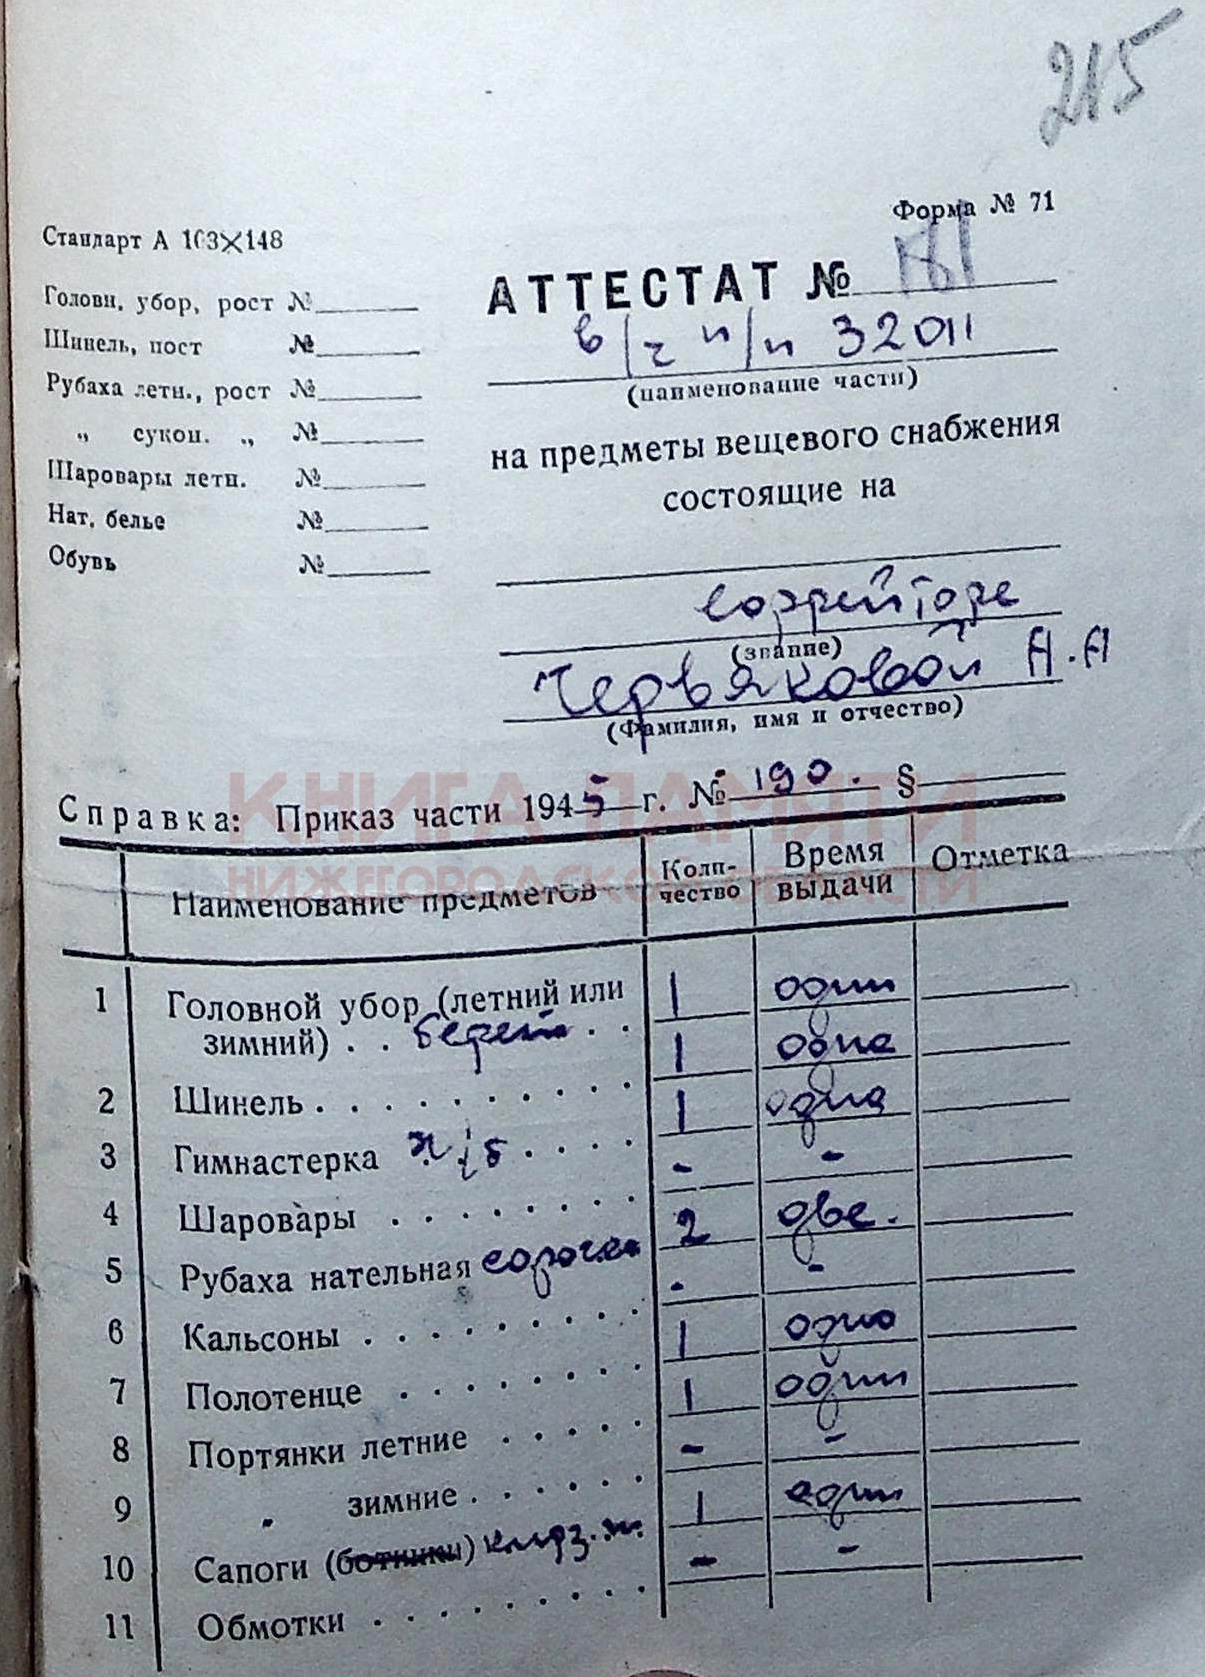 215
Форма № 71
Стандарт А 103×148
АТТЕСТАТ № 181
в/ч п/п 32011
(наименование части)
на предметы вещевого снабжения
состоящие на
Головн, убор, рост №
Шинель, пост №
Рубаха летн., рост №
„ сукон. „ №
Шаровары летн. №
Нат. белье №
Обувь №
ефрейторе
(звание)
Червяковой А.А
(Фамилия, имя и отчество)
КНИГА ПАМЯТИ
НИЖЕГОРОДСКОЙ ОБЛАСТИ
Справка: Приказ части 1945 г. № 190. §
Наименование предметов Количество Время выдачи Отметка
1 Головной убор (летний или 1 один
зимний) . . берет . . 1 одна
2 Шинель . . . . . . . . . 1 одна
3 Гимнастерка х/б . . . . - -
4 Шаровары . . . . . . . . 2 две.
5 Рубаха нательная сорочка - -
6 Кальсоны . . . . . . . . . 1 одно
7 Полотенце . . . . . . . . 1 один
8 Портянки летние . . . . . - -
9 „ зимние . . . . . . 1 один
10 Сапоги (ботинки) кирз. - -
11 Обмотки . . . . . . . . .